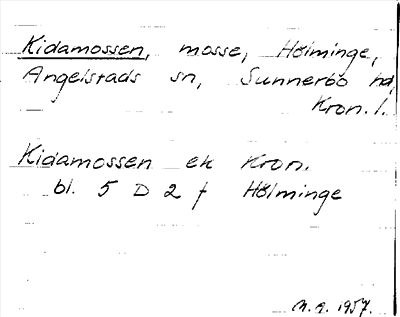 Kidamossen, mosse, Hölminge,
Angelstads sn, Sunnerbo hd,
Kron. l.
Kidamossen ek Kron.
bl. 5 D 2 f Hölminge
1957.